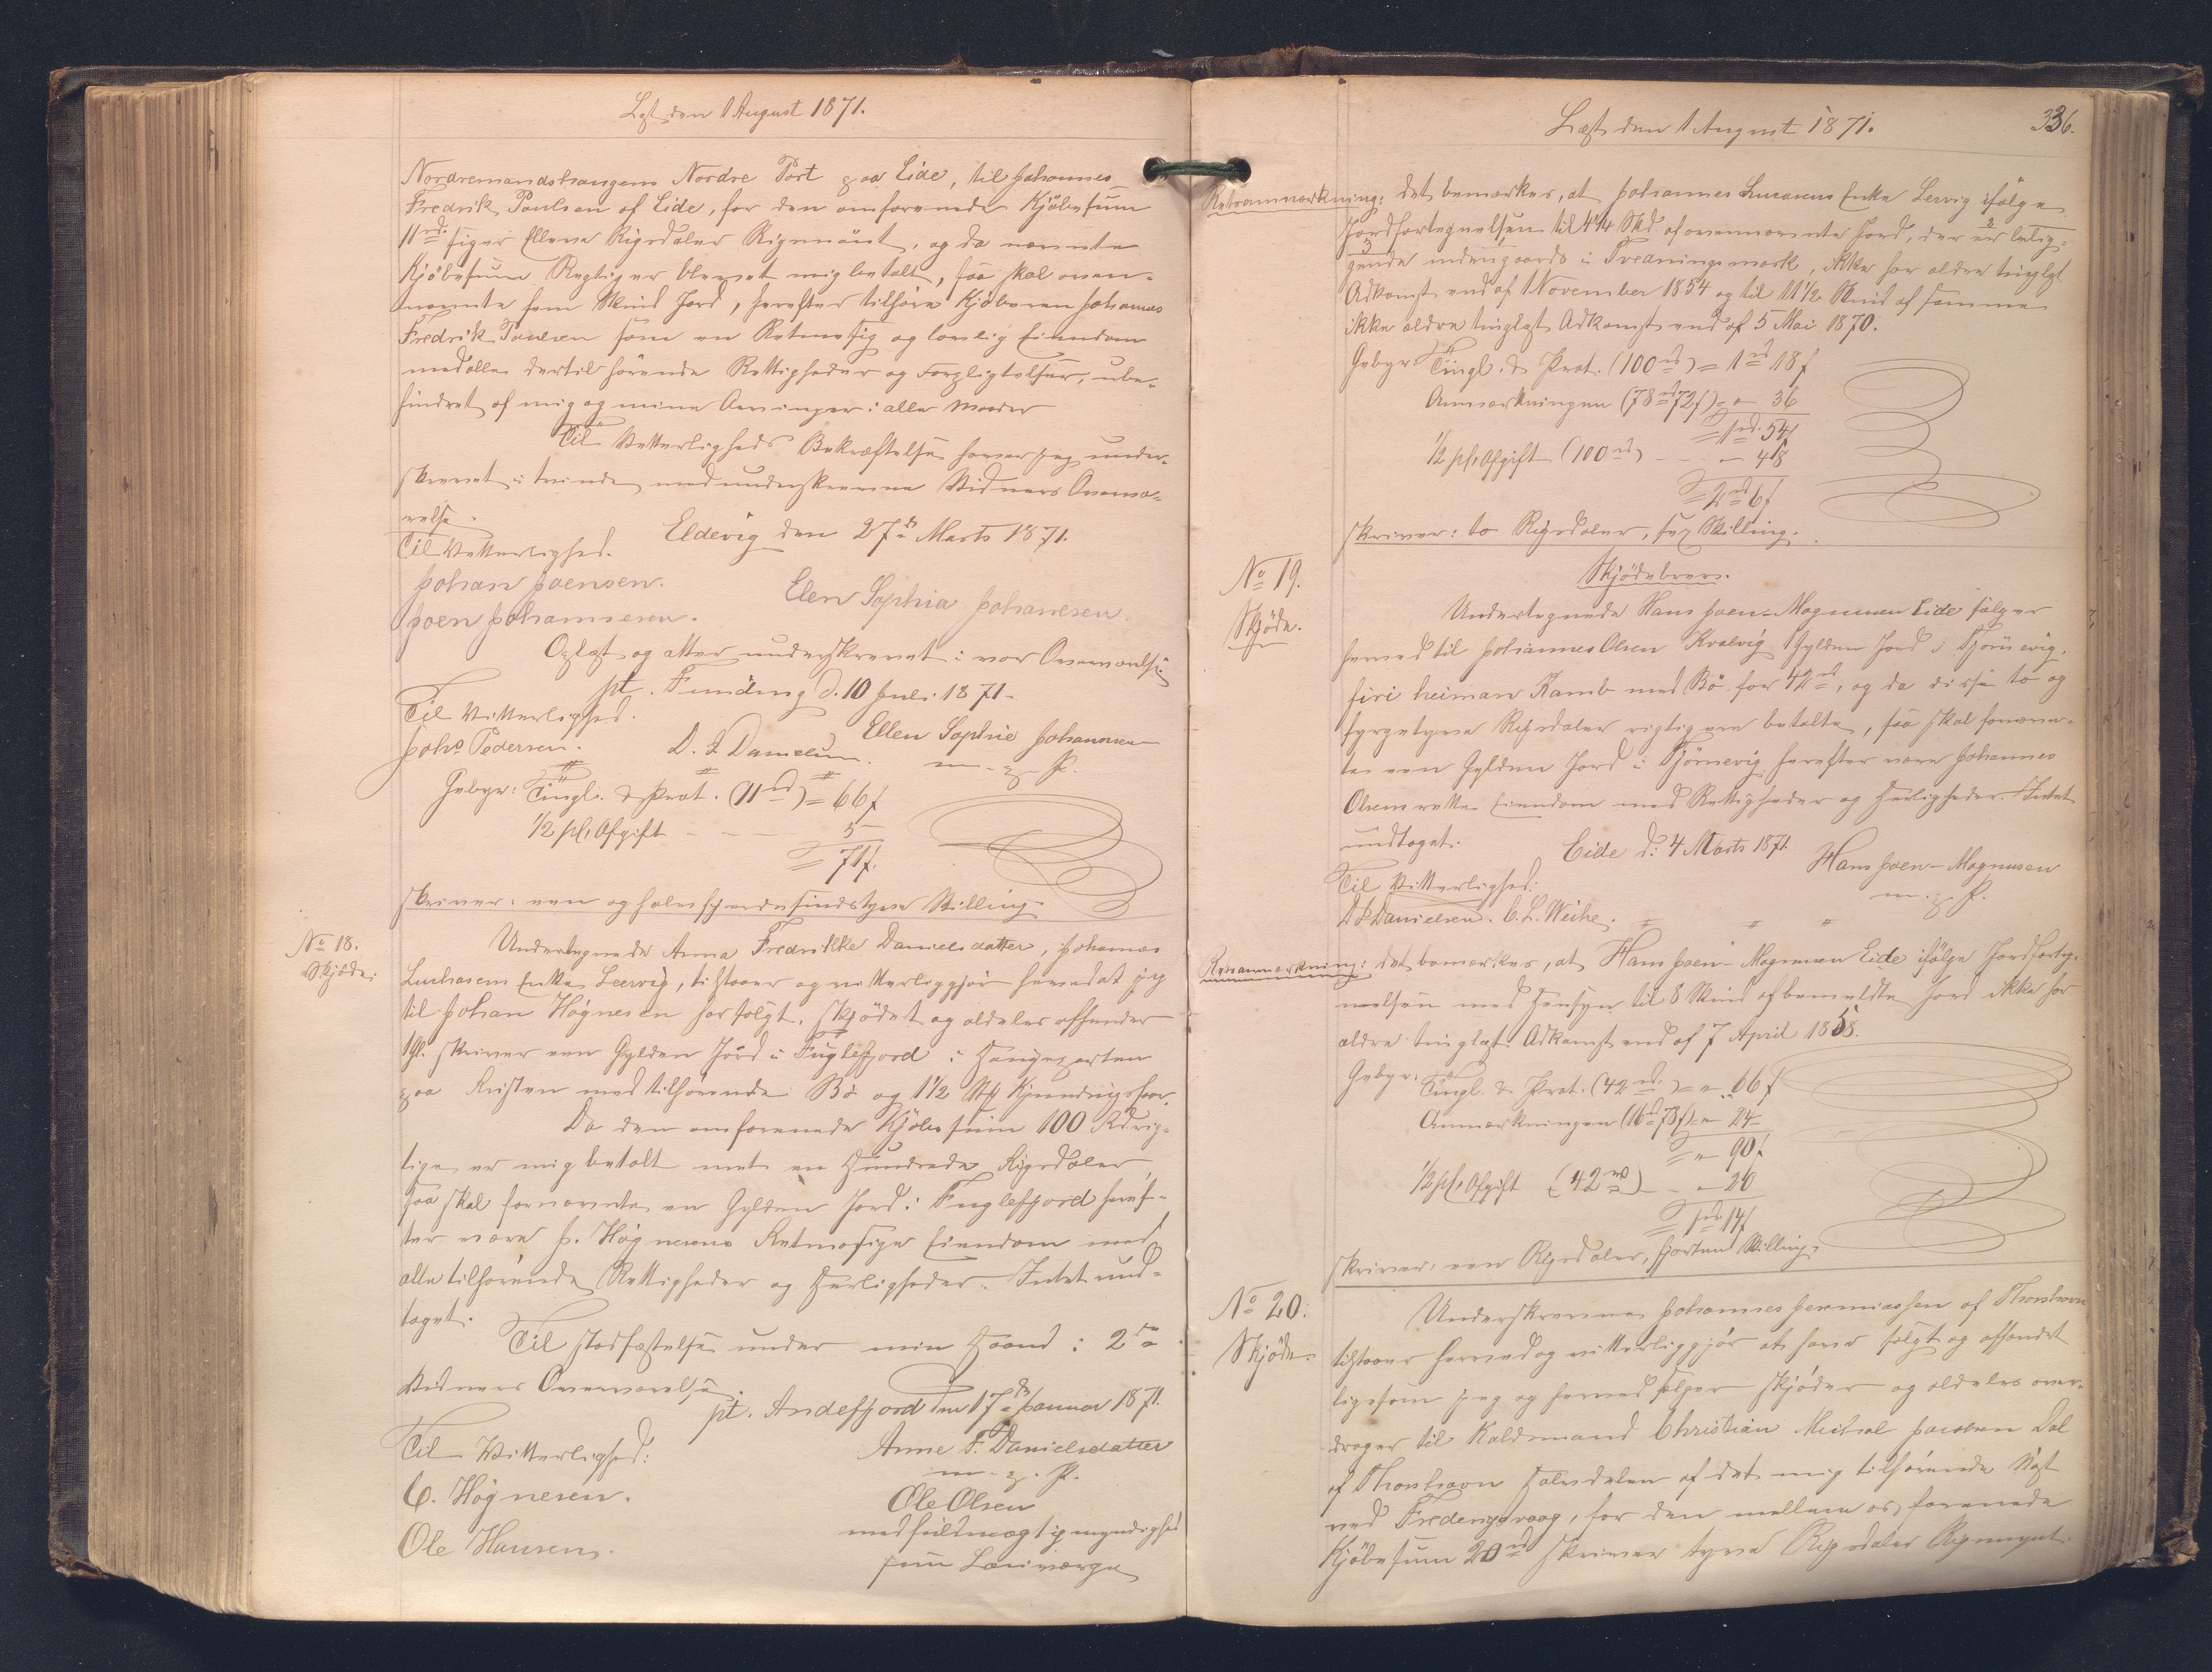 Læst den 1 August 1871.
Nordremandshaugens Nordre Part paa Eide, til Johannes
Fredrik Poulsen af Eide, for den omforenede Kjöbesum
11 rd. siger Elleve Rigsdaler Rigsmönt, og da nævnte
Kjöbesum Rigtig er blevet mig betalt, saa skal oven-
nævnte fem Skind Jord, herefter tilhöre Kjöberen Johannes
Fredrik Poulsen som en Retmæsig og lovlig Eiendom
med alle dertil hörende Rettigheder og Forpligtelser, ube-
hindret af mig og mine Arvinger i alle Maader
Til Vitterligheds Bekræftelse haver jeg under-
skrevet i tvende medunderskrevne Vidners Overvæ-
relse.
Eldevig den 27de Marts 1871.
Til Vitterlighed.
Johan Joensen.
Joen Johannesen.
Elen Sophia Johanesen.
Oplæst og atter underskrevet i vor Overværelse
pt. Funding d. 10 Juli 1871.
Til Vitterlighed.
Johs Pedersen. D. J. Danielsen.
Ellen Sophie Johannesen
m. p. P.
Gebyr: Tingl. & Prot. (11 rd) = 66 s
1/2 pCt. Afgift - - - 5 -
= 71 s.
skriver: een og halvfjerdesindstyve Skilling.
No 18.
Skjöde.
Undertegnede Anna Fredrikke Danielsdatter, Johannes
Lucasens Enke Leervig, tilstaaer og vitterliggjör herved at jeg
til Johan Högnesen har solgt, skjödet og aldeles afhænder
1 Gl. skriver een Gylden Jord i Fuglefjord i
paa med tilhörende Bö og 1 1/2
Da den omforenede Kjöbesum 100 Rd rig-
tige er mig betalt med en Hundrede Rigsdaler
saa skal fornævnte en Gylden Jord i Fuglefjord heref-
ter være J. Högnesens Retmæsige Eiendom med
alle tilhörende Rettigheder og Herligheder. Intet und-
taget.
Til Stadfæstelse under min Haand i 2de
Vidners Overværelse.
pt. Andefjord den 17de Januar 1871.
Til Vitterlighed:
C. Högnesen.
Ole Hansen.
Anne F. Danielsdatter
m. p. P.
Ole Olsen
med fuldmægtig myndighed
som Lauværge
Læst den 1 August 1871.
336.
Retsanmærkning: Det bemærkes, at Johannes Lucasens Enke Lervig ifölge
Jordfortegnelsen til 4 1/4 Skd. af ovennævnte Jord, der er belig-
gende udengaards i mark, ikke har ældre tinglyst
Adkomst end af 1 November 1854 og til 11 1/2 Skind af samme
ikke ældre tinglæst Adkomst end af 5 Mai 1870.
Gebyr: Tingl. & Prot. (100 rd) = 1 rd 18 s
Anmærkningen (78 rd 72 s) = " 36
= 1 rd. 54 s
1/2 pCt. Afgift (100 rd) - - " 48
= 2 rd 6 s
skriver: to Rigsdaler, sex Skilling.
No 19.
Skjöde.
Skjödebrev.
Undertegnede Hans Joen-Magnusen Eide sælger
herved til Johannes Olsen Kvalvig 1 Gylden Jord i Tjörnevig,
firi heiman Kamb med Bö for 42 rd, og da disse to og
fyrgetyve Rigsdaler rigtig ere betalte, saa skal fornævn-
te een Gylden Jord i Tjörnevig herefter være Johannes
Olsens rette Eiendom med Rettigheder og Herligheder. Intet
undtaget.
Eide d: 4 Marts 1871.
Hans Joen-Magnusen
m. p. P.
Til Vitterlighed:
D. J. Danielsen. C. L. Weihe.
Retsanmærkning: Det bemærkes, at Hans Joen-Magnusen Eide ifölge Jordforteg-
nelsen med Hensyn til 8 Skind af bemeldte Jord ikke har
ældre tinglæst Adkomst end af 7 April 1858.
Gebyr: Tingl. & Prot. (42 rd.) = " 66 s
Anmærkningen (16 rd 78 s) = " 24 -
= " 90 s
1/2 pCt. Afgift (42 rd) - " 20
= 1 rd 14 s
skriver: een Rigsdaler, fjorten Skilling.
No 20.
Skjöde.
Underskrevne Johannes Jeremiassen af Thorshavn
tilstaaer herved og vitterliggjör at have solgt og afhændet
ligesom jeg og herved sælger skjöder og aldeles over-
drager til Christian Michal Jacobsen Dal
af Thorshavn Halvdelen af det mig tilhörende Nöst
ved Fredensvaag, for den mellem os forenede
Kjöbesum 20 rd skriver tyve Rigsdaler Rigsmynt.